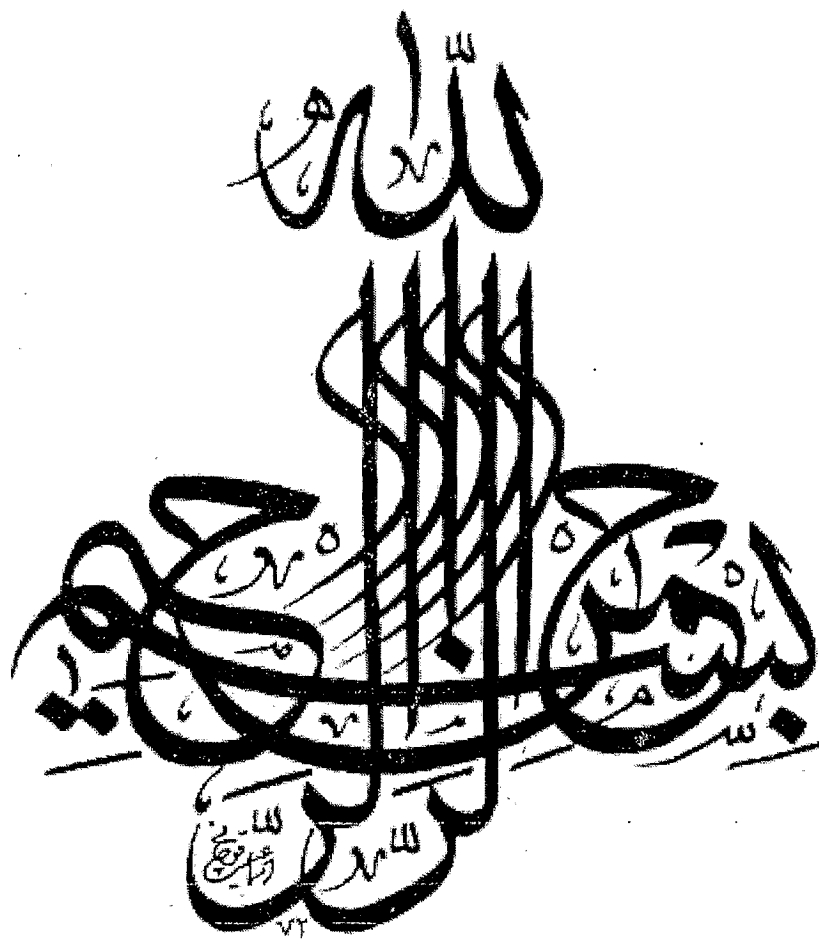 بسم الله الرحمن الرحيم
٧٢